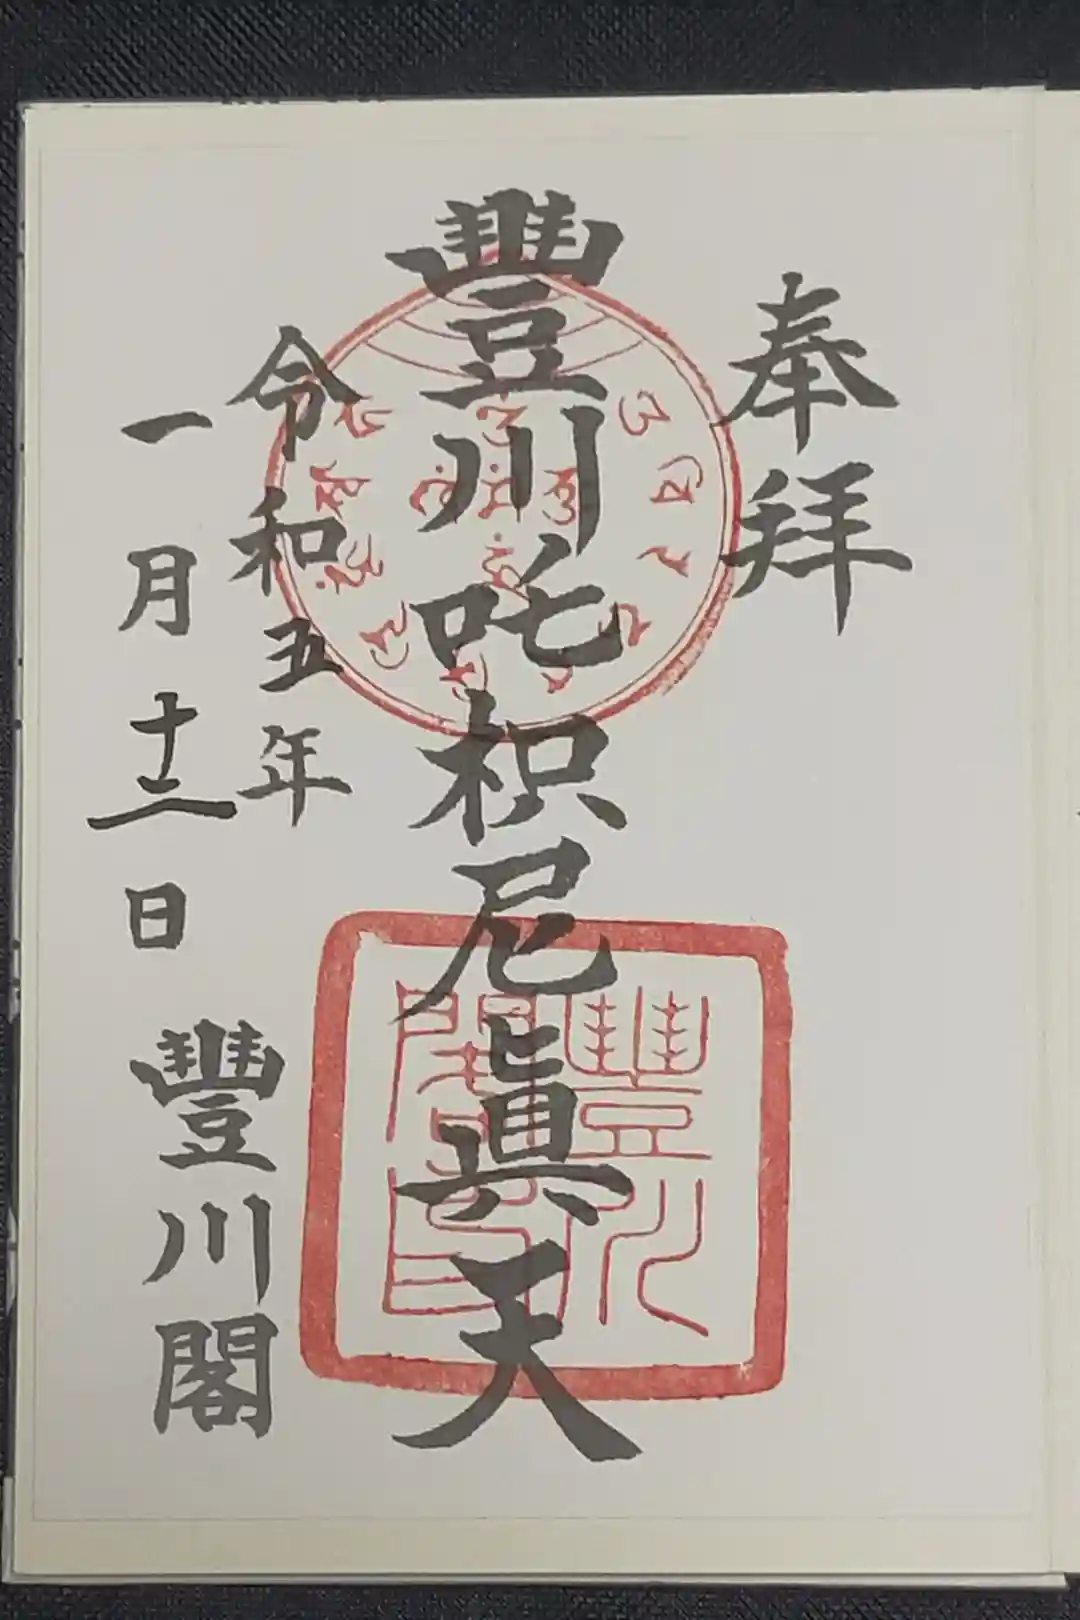 奉拝
豐川吒枳尼眞天
令和五年
一月十二日
豐川閣
豐川
閣印